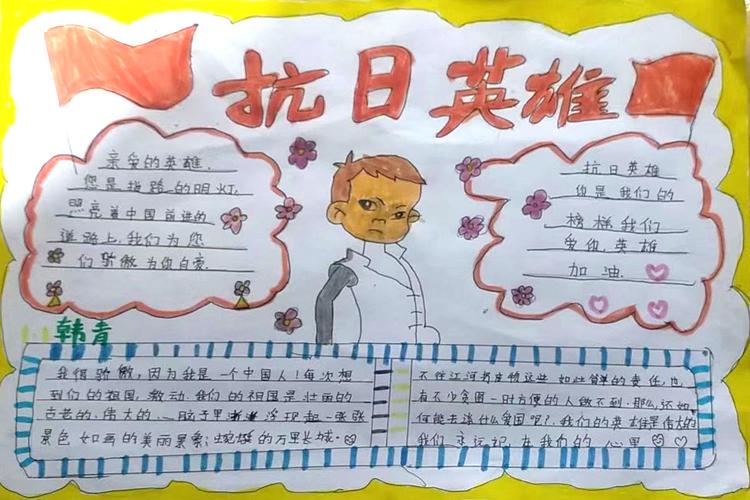 抗日英雄
亲爱的英雄.
您是指路的明灯.
照亮着中国前进的
道路上.我们为您
们骄傲为你自豪.
抗日英雄
你是我们的
榜样我们
爱你英雄
加油.
韩青
我很骄傲,因为我是一个中国人!每次想
到们的祖国,激动.我们的祖国是壮丽的
古老的.伟大的.一脑子里浮现起一张张
景色如画的美丽景象;蜿蜒的万里长城.
不往江河 这些如此简单的责任,也
有不少贪图一时方便的人做不到.那么,还如
何能去谈什么贪国呢?.我们的英雄是伟大的
我们永远记在我们的心里